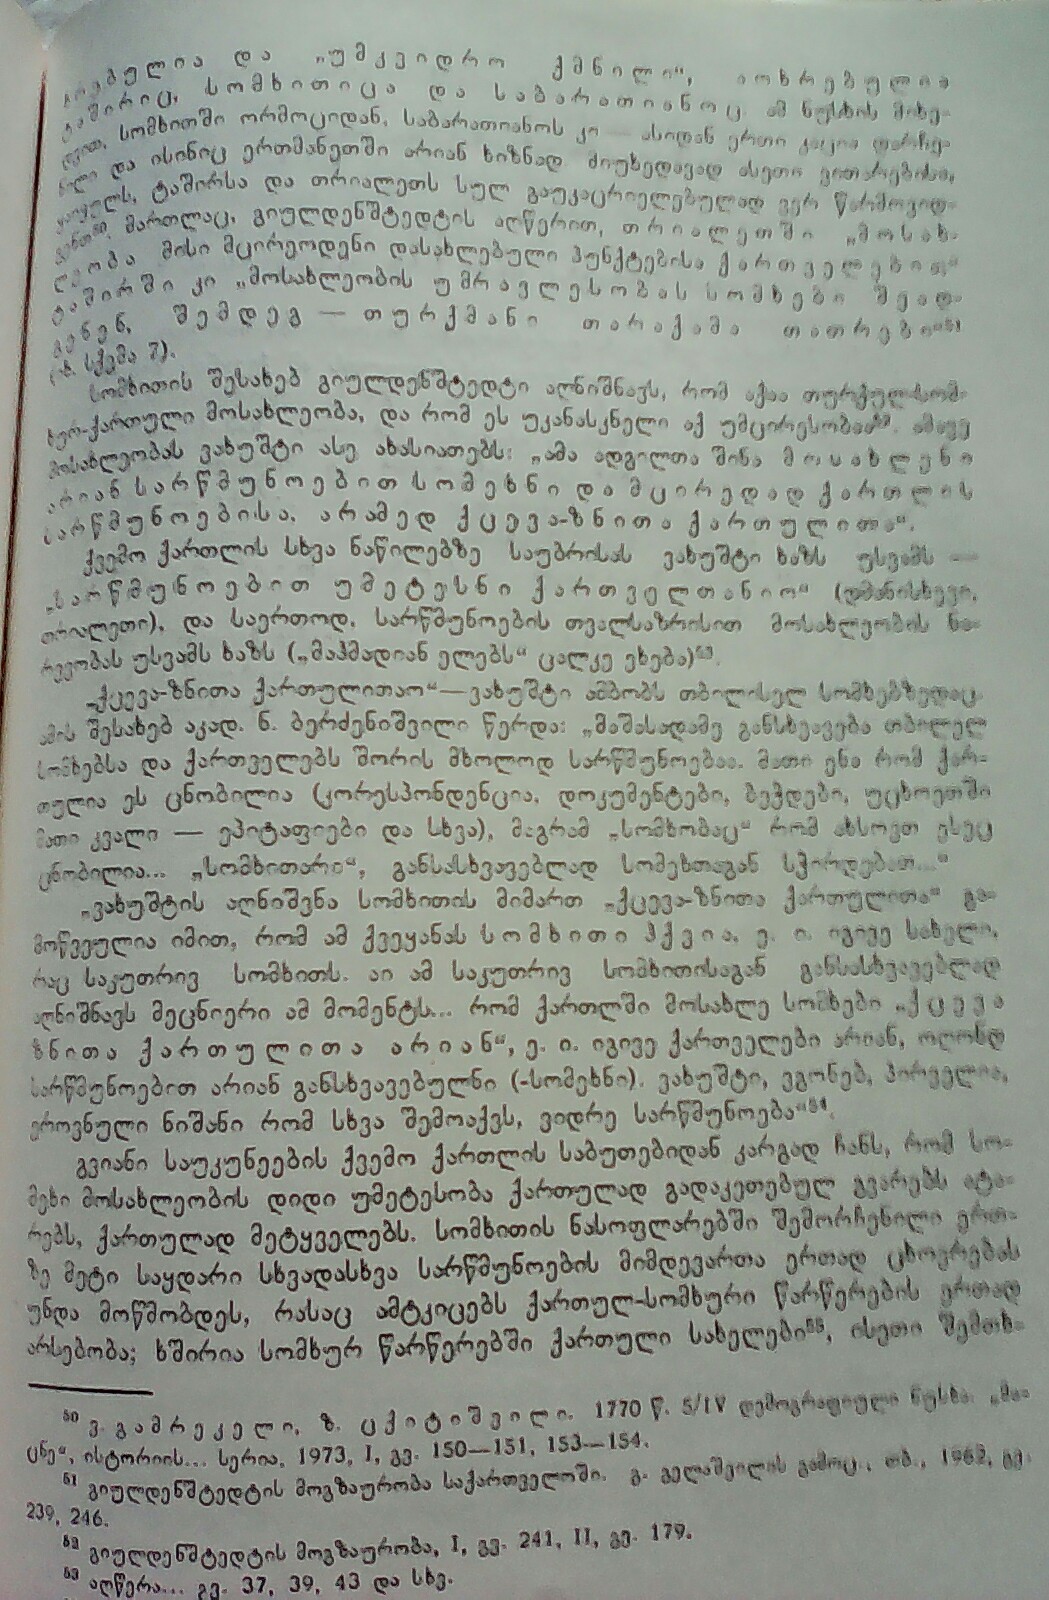 და „უმკვიდრო ქმნილი“, ოხრებულია
ტაშირიც, სომხითიცა და საბარათიანოც. ამ ნუსხის მიხე-
დვით, სომხითში ორმოციდან, საბარათიანოს კი — ასიდან ერთი კაცია დარჩე-
ნილი და ისინიც ერთმანეთში არიან ხიზნად. მიუხედავად ასეთი ვითარებისა,
ტაშირსა და თრიალეთს სულ გაუკაცრიელებულად ვერ წარმოვიდ-
გენთ⁵⁰. მართლაც, გიულდენშტედტის აღწერით, თრიალეთში „მოსახ-
ლეობა მისი მცირეოდენი დასახლებული პუნქტებისა ქართველებია“
ტაშირში კი „მოსახლეობის უმრავლესობას სომხები შეად-
გენენ, შემდეგ — თურქმანი თარაქამა თათრები“⁵¹
(იხ. სქემა 7).
სომხითის შესახებ გიულდენშტედტი აღნიშნავს, რომ აქაა თურქულ-სომ-
ხურ-ქართული მოსახლეობა, და რომ ეს უკანასკნელი აქ უმცირესობაა⁵². ამავე
მოსახლეობას ვახუშტი ასე ახასიათებს: „ამა ადგილთა შინა მოსახლენი
არიან სარწმუნოებით სომეხნი და მცირედად ქართლის
სარწმუნოებისა, არამედ ქცევა-ზნითა ქართულითა“.
ქვემო ქართლის სხვა ნაწილებზე საუბრისას ვახუშტი ხაზს უსვამს —
„სარწმუნოებით უმეტესნი ქართველთანიო“ (დმანისხევი,
თრიალეთი), და საერთოდ, სარწმუნოების თვალსაზრისით მოსახლეობის ნა-
რევობას უსვამს ხაზს („მაჰმადიან ელებს“ ცალკე ეხება)⁵³.
„ქცევა-ზნითა ქართულითაო“—ვახუშტი ამბობს თბილისელ სომხებზედაც.
ამის შესახებ აკად. ნ. ბერძენიშვილი წერდა: „მაშასადამე განსხვავება თბილელ
სომხებსა და ქართველებს შორის მხოლოდ სარწმუნოებაა. მათი ენა რომ ქარ-
თულია ეს ცნობილია (კორესპონდენცია, დოკუმენტები, ბეჭდები, უცხოეთში
მათი კვალი — ეპიტაფიები და სხვა), მაგრამ „სომხობაც“ რომ ახსოვთ ესეც
ცნობილია... „სომხითარი“, განსასხვავებლად სომეხთაგან სჭირდებათ...“
„ვახუშტის აღნიშვნა სომხითის მიმართ „ქცევა-ზნითა ქართულითა“ გა-
მოწვეულია იმით, რომ ამ ქვეყანას სომხითი ჰქვია, ე. ი. იგივე სახელი,
რაც საკუთრივ სომხითს. აი ამ საკუთრივ სომხითისაგან განსასხვავებლად
აღნიშნავს მეცნიერი ამ მომენტს... რომ ქართლში მოსახლე სომხები „ქცევა
ზნითა ქართულითა არიან“, ე. ი. იგივე ქართველები არიან, ოღონდ
სარწმუნოებით არიან განსხვავებულნი (-სომეხნი). ვახუშტი, ვგონებ, პირველია,
ეროვნული ნიშანი რომ სხვა შემოაქვს, ვიდრე სარწმუნოება“⁵⁴.
გვიანი საუკუნეების ქვემო ქართლის საბუთებიდან კარგად ჩანს, რომ სო-
მეხი მოსახლეობის დიდი უმეტესობა ქართულად გადაკეთებულ გვარებს ატა-
რებს, ქართულად მეტყველებს. სომხითის ნასოფლარებში შემორჩენილი ერთ-
ზე მეტი საყდარი სხვადასხვა სარწმუნოების მიმდევართა ერთად ცხოვრებას
უნდა მოწმობდეს, რასაც ამტკიცებს ქართულ-სომხური წარწერების ერთად
არსებობა; ხშირია სომხურ წარწერებში ქართული სახელები⁵⁵, ისეთი შემთხ-
⁵⁰ ვ. გამრეკელი, ზ. ცქიტიშვილი. 1770 წ. 5/IV დემოგრაფიული ნუსხა. „მა-
ცნე“, ისტორიის... სერია, 1973, I, გვ. 150—151, 153—154.
⁵¹ გიულდენშტედტის მოგზაურობა საქართველოში. გ. გელაშვილის გამოც., თბ., 1962, გვ.
239, 246.
⁵² გიულდენშტედტის მოგზაურობა, I, გვ. 241, II, გვ. 179.
⁵³ აღწერა... გვ. 37, 39, 43 და სხვ.